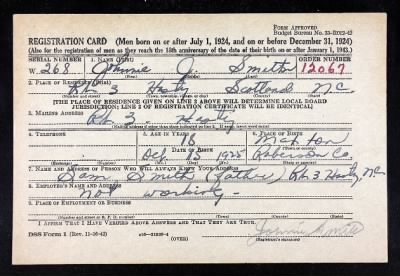 FORM APPROVED
REGISTRATION CARD (Men born on or after July 1, 1924, and on or before December 31, 1924)
(Also for the registration of men as they reach the 18th anniversary of the date of their birth on or after January 1, 1943.)
SERIAL NUMBER 1. NAME (Print) ORDER NUMBER
W 268 Johnnie J. Smith 12067
2. PLACE OF RESIDENCE (Print)
Rt. 3 Hasty Scotland N.C.
[THE PLACE OF RESIDENCE GIVEN ON LINE 2 ABOVE WILL DETERMINE LOCAL BOARD
JURISDICTION; LINE 2 OF REGISTRATION CERTIFICATE WILL BE IDENTICAL]
3. MAILING ADDRESS
Rt. 3. Hasty
4. TELEPHONE 5. AGE IN YEARS 6. PLACE OF BIRTH
18 Maxton
DATE OF BIRTH
1925 Roberson Co.
7. NAME AND ADDRESS OF PERSON WHO WILL ALWAYS KNOW YOUR ADDRESS
Sam Smith (father) Rt 3 Hasty, N.C.
8. EMPLOYER'S NAME AND ADDRESS
Not working
9. PLACE OF EMPLOYMENT OR BUSINESS
I AFFIRM THAT I HAVE VERIFIED ABOVE ANSWERS AND THAT THEY ARE TRUE.
DSS Form 1 (Rev. 11-16-42) (OVER)
(Registrant's signature)